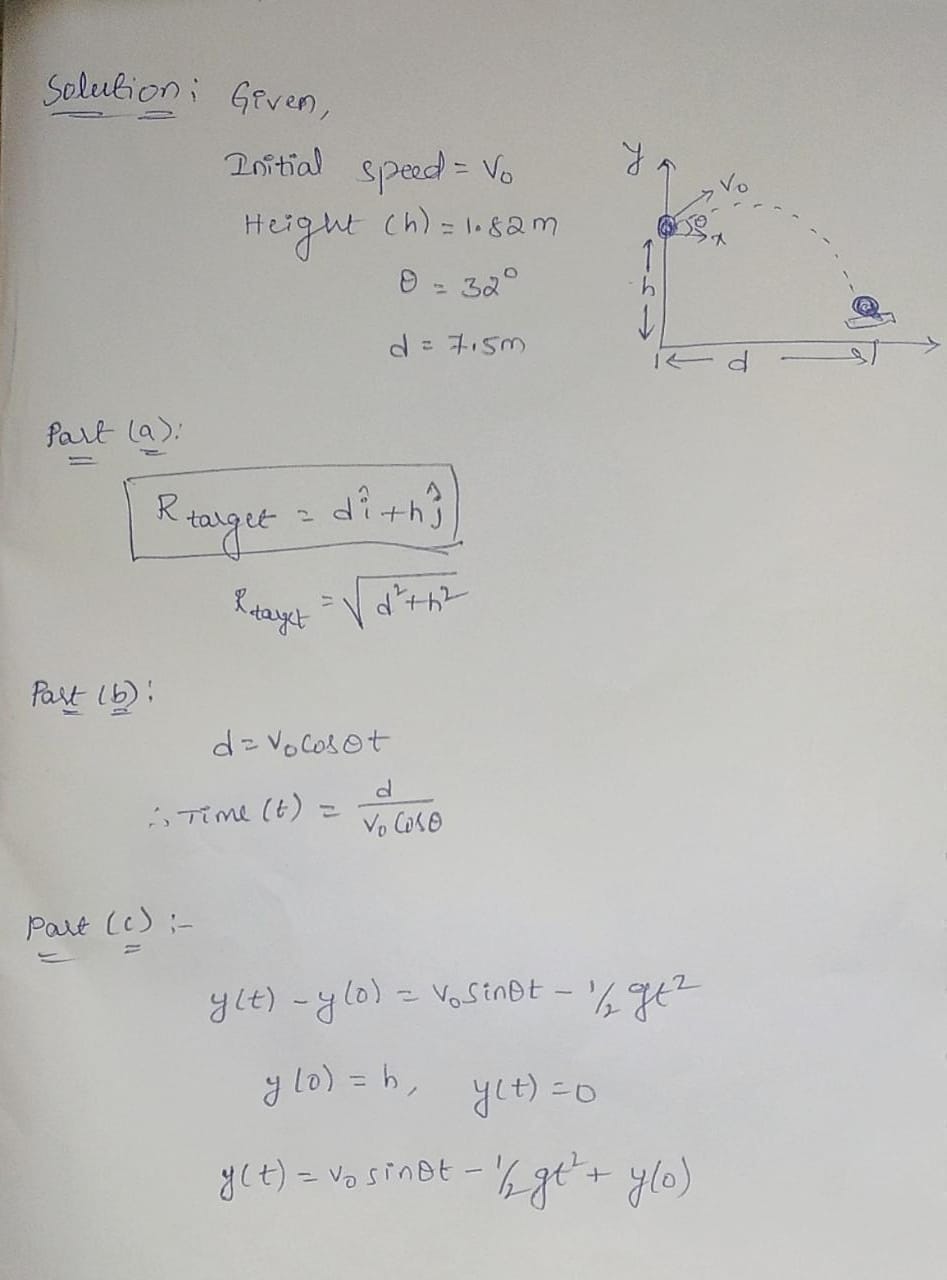 Solution: Given,
Initial speed = V₀
Height (h) = 1.82m
θ = 32°
d = 7.5m
y
V₀
θ
x
h
d
Part (a):
R target = dî + hĵ
R target = √d²+h²
Part (b):
d = V₀ cosθt
∴ Time (t) = d / V₀ cosθ
Part (c) :-
y(t) - y(0) = V₀ sinθt - 1/2 gt²
y(0) = h, y(t) = 0
y(t) = V₀ sinθt - 1/2 gt² + y(0)